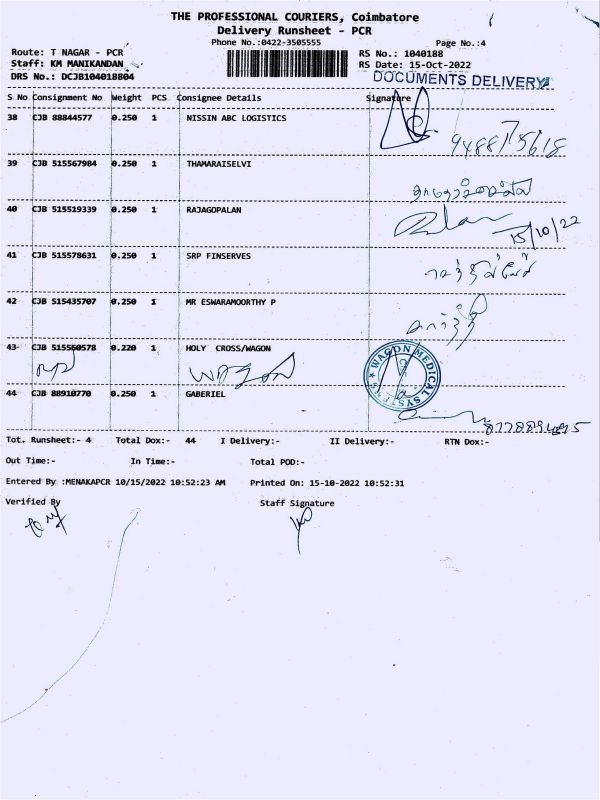 THE PROFESSIONAL COURIERS, Coimbatore
Delivery Runsheet - PCR
Phone No.:0422-3505555
Page No.:4
Route: T NAGAR - PCR
RS No.: 1040188
Staff: KM MANIKANDAN
RS Date: 15-Oct-2022
DRS No.: DCJB104018804
DOCUMENTS DELIVERY
S No Consignment No Weight PCS Consignee Details Signature
38 CJB 88844577 0.250 1 NISSIN ABC LOGISTICS
39 CJB 515567984 0.250 1 THAMARAISELVI
40 CJB 515519339 0.250 1 RAJAGOPALAN
15/10/22
41 CJB 515578631 0.250 1 SRP FINSERVES
42 CJB 515435707 0.250 1 MR ESWARAMOORTHY P
43 CJB 515560578 0.220 1 HOLY CROSS/WAGON
WAGON MEDICAL SYSTEMS
44 CJB 88910770 0.250 1 GABERIEL
Tot. Runsheet:- 4 Total Dox:- 44 I Delivery:- II Delivery:- RTN Dox:-
Out Time:- In Time:- Total POD:-
Entered By :MENAKAPCR 10/15/2022 10:52:23 AM Printed On: 15-10-2022 10:52:31
Verified By Staff Signature